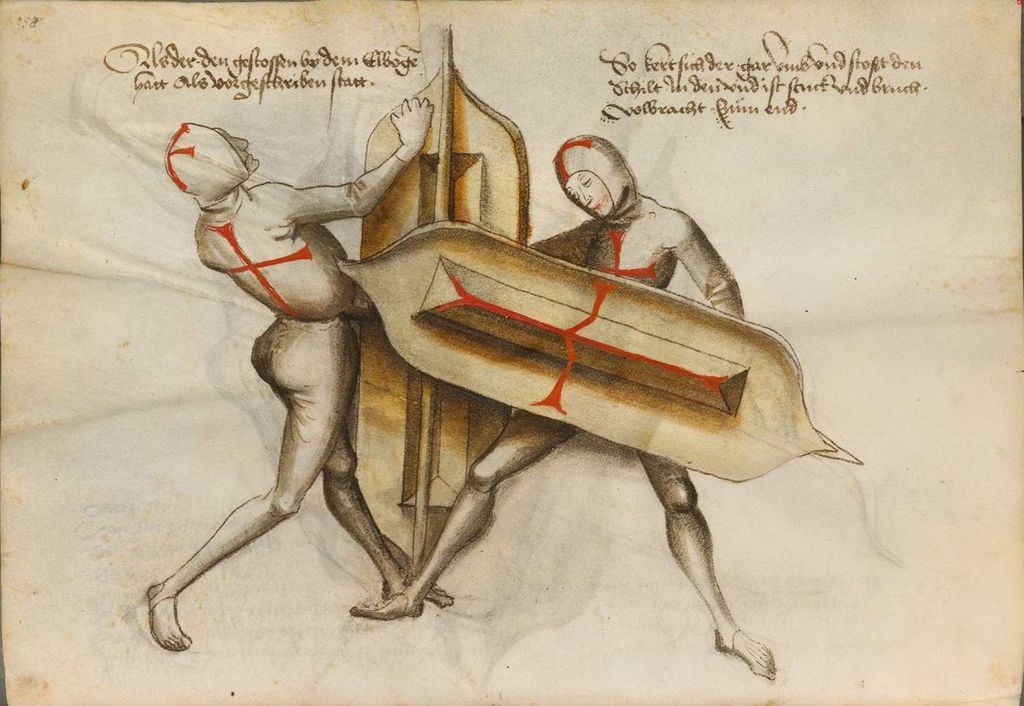 158
Als der den gestossen by dem Elboge
hatt Als vorgeschriben statt.
So kert sich der gar umb und stost den
Schilt In den und ist stuck und bruch.
volbracht Zum end.